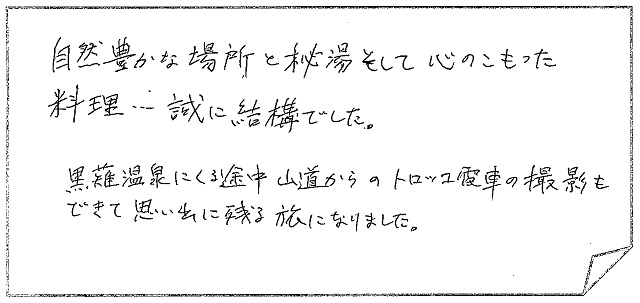 自然豊かな場所と秘湯そして心のこもった
料理… 誠に結構でした。
黒薙温泉にくる途中山道からのトロッコ電車の撮影も
できて思い出に残る旅になりました。